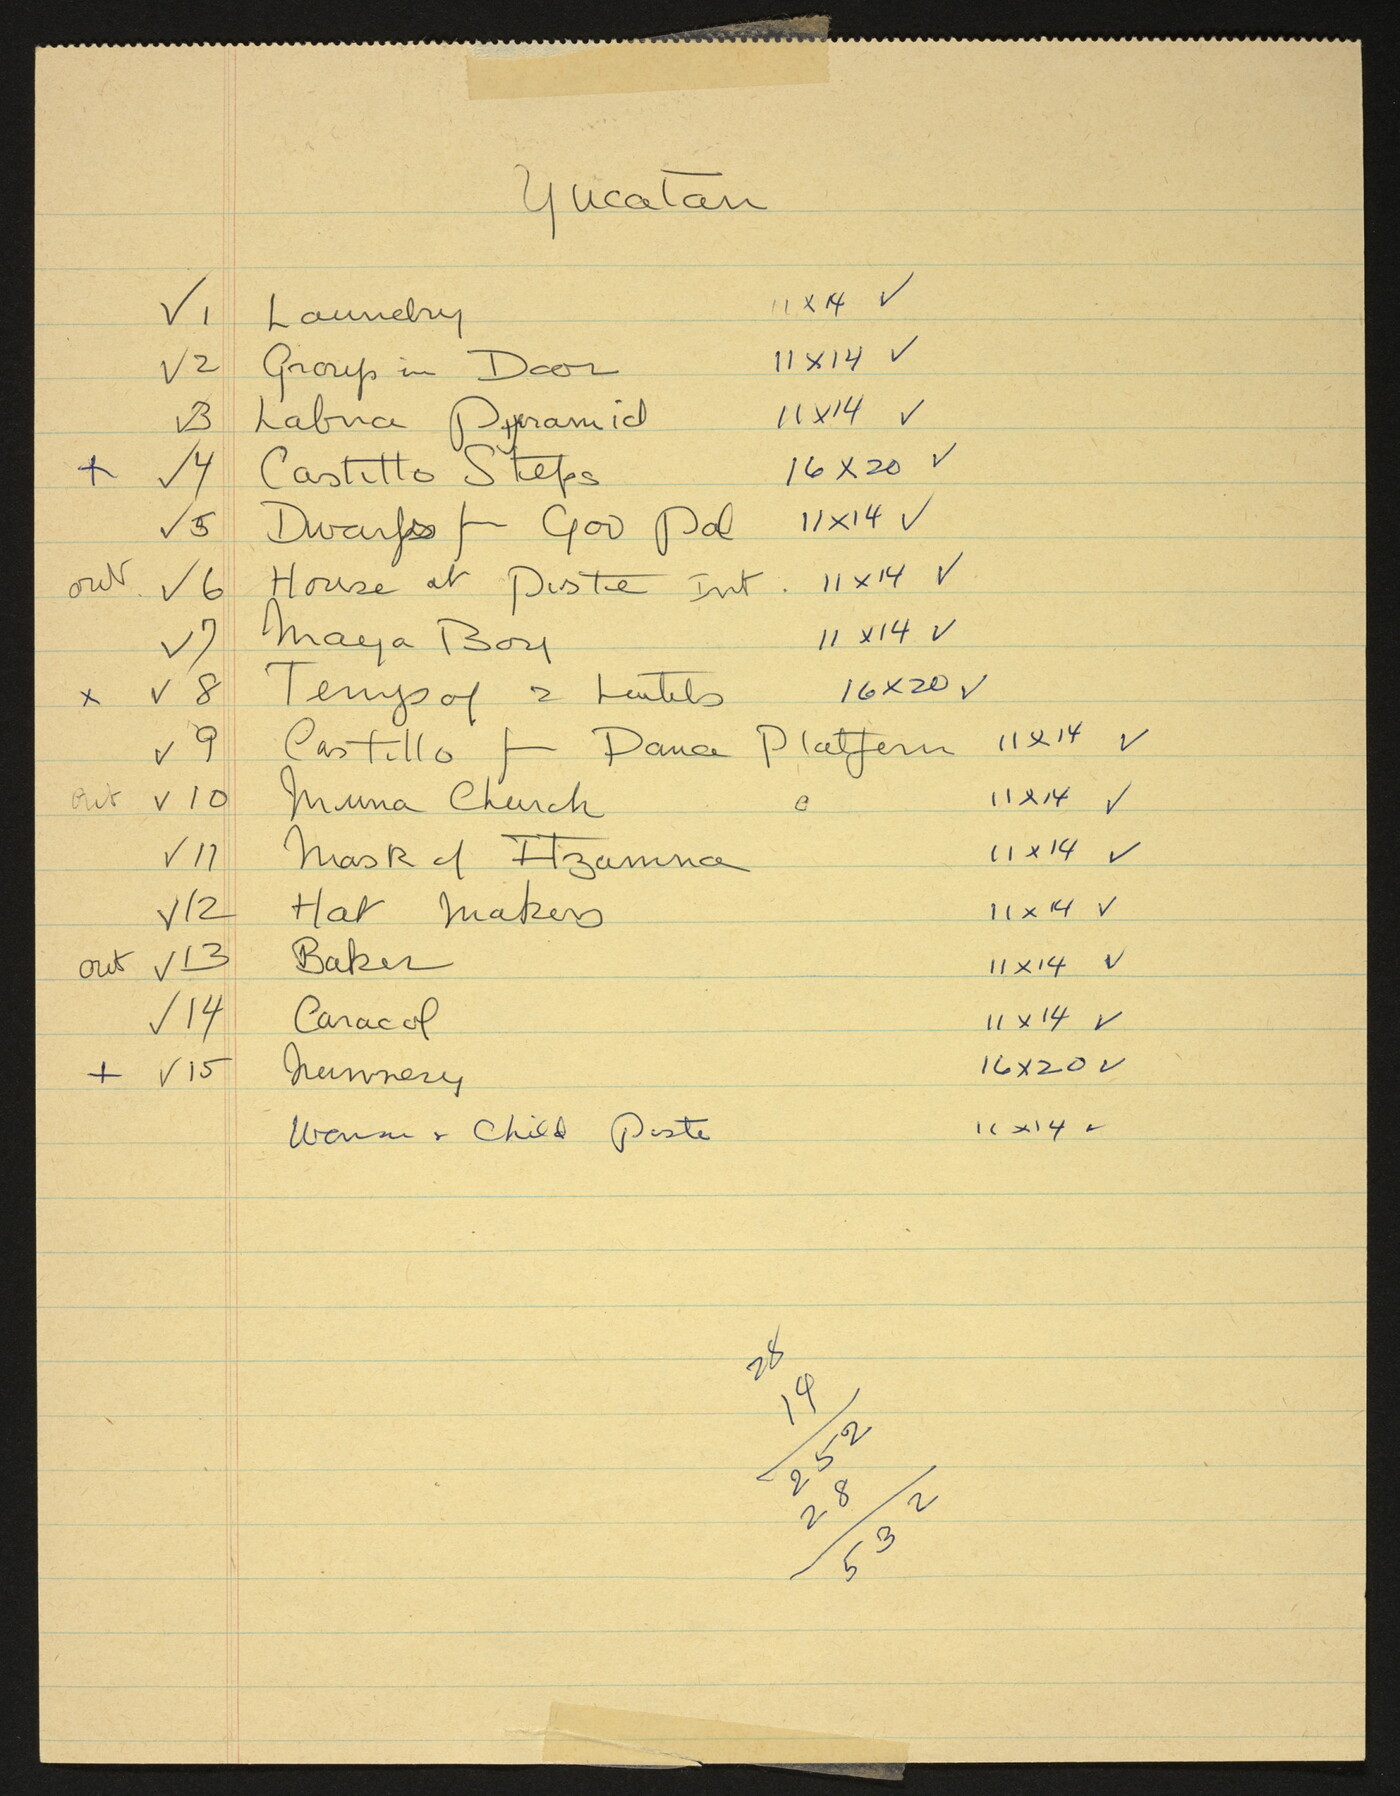 Yucatan
✓1 Laundry 11x14 ✓
✓2 Group in Door 11x14 ✓
✓3 Labna Pyramid 11x14 ✓
+ ✓4 Castillo Steps 16x20 ✓
✓5 Dwarfs f— Gov Pal 11x14 ✓
out ✓6 House at Piste Int. 11x14 ✓
✓7 Maya Boy 11x14 ✓
x ✓8 Temp of 2 Lintels 16x20 ✓
✓9 Castillo f— Dance Platform 11x14 ✓
out ✓10 Muna Church c 11x14 ✓
✓11 Mask of Itzamna 11x14 ✓
✓12 Hat Makers 11x14 ✓
out ✓13 Baker 11x14 ✓
✓14 Caracol 11x14 ✓
+ ✓15 Nunnery 16x20 ✓
Woman + Child Piste 11x14 ✓
28
19
252
28
532